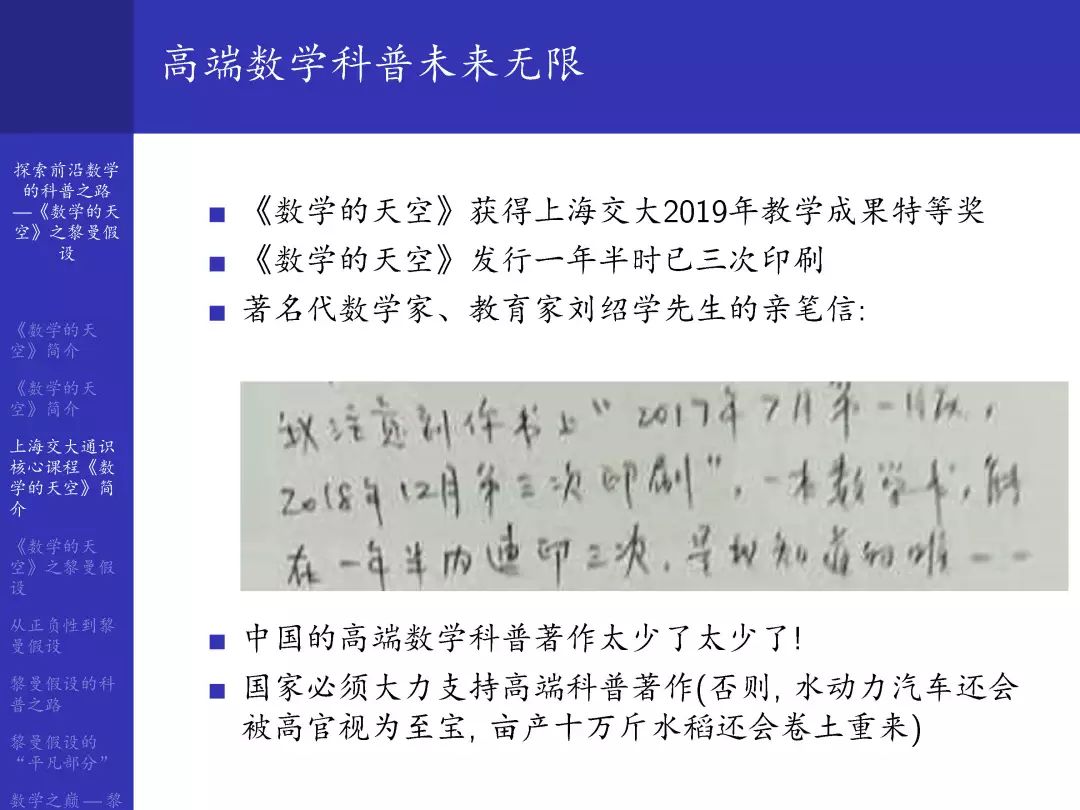 高端数学科普未来无限
探索前沿数学
的科普之路
—《数学的天
空》之黎曼假
设
《数学的天
空》简介
《数学的天
空》简介
上海交大通识
核心课程《数
学的天空》简
介
《数学的天
空》之黎曼假
设
从正负性到黎
曼假设
黎曼假设的科
普之路
黎曼假设的
“平凡部分”
数学之巅—黎
《数学的天空》获得上海交大2019年教学成果特等奖
《数学的天空》发行一年半时已三次印刷
著名代数学家、教育家刘绍学先生的亲笔信:
我注意到你书上“2017年7月第一版,
2018年12月第三次印刷”,一本数学书,能
在一年半内连印三次,是我知道的唯一一
中国的高端数学科普著作太少了太少了!
国家必须大力支持高端科普著作(否则, 水动力汽车还会
被高官视为至宝, 亩产十万斤水稻还会卷土重来)